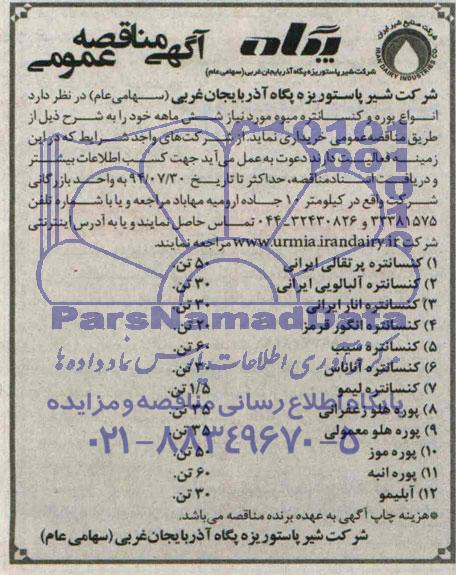 آگهی مناقصه عمومی
پگاه
شرکت شیر پاستوریزه پگاه آذربایجان غربی (سهامی عام)
شرکت صنایع شیر ایران
IRAN DAIRY INDUSTRIES CO.
شرکت شیر پاستوریزه پگاه آذربایجان غربی (سهامی عام) در نظر دارد
انواع پوره و کنسانتره میوه مورد نیاز شش ماهه خود را به شرح ذیل از
طریق مناقصه عمومی خریداری نماید. از شرکت‌های واجد شرایط که در این
زمینه فعالیت دارند دعوت به عمل می‌آید جهت کسب اطلاعات بیشتر
و دریافت اسناد مناقصه، حداکثر تا تاریخ ۹۴/۰۷/۳۰ به واحد بازرگانی
شرکت واقع در کیلومتر ۱۰ جاده ارومیه مهاباد مراجعه و یا با شماره تلفن
۳۳۳۸۱۵۷۵ و ۳۲۴۳۰۸۲۶-۰۴۴ تماس حاصل نمایند و یا به آدرس اینترنتی
شرکت www.urmia.irandairy.ir مراجعه نمایند.
۱) کنسانتره پرتقالی ایرانی ۵۰ تن.
۲) کنسانتره آلبالویی ایرانی ۳۰ تن.
۳) کنسانتره انار ایرانی ۳۰ تن.
۴) کنسانتره انگور قرمز تن.
۵) کنسانتره سیب ۶۰ تن.
۶) کنسانتره آناناس تن.
۷) کنسانتره لیمو ۱/۵ تن.
۸) پوره هلو زعفرانی ۳۵ تن.
۹) پوره هلو معمولی ۳۵ تن.
۱۰) پوره موز تن.
۱۱) پوره انبه ۶۰ تن.
۱۲) آبلیمو ۳۰ تن.
*هزینه چاپ آگهی به عهده برنده مناقصه می‌باشد.
شرکت شیر پاستوریزه پگاه آذربایجان غربی (سهامی عام)
ParsNamadData
مرکز فرآوری اطلاعات پارس نماد داده ها
پایگاه اطلاع رسانی مناقصه و مزایده
۰۲۱-۸۸۳۴۹۶۷۰-۵